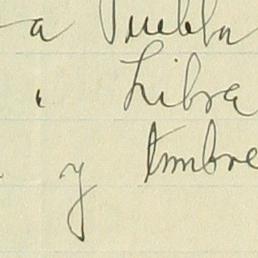 a Puebla
" Libra
y timbre